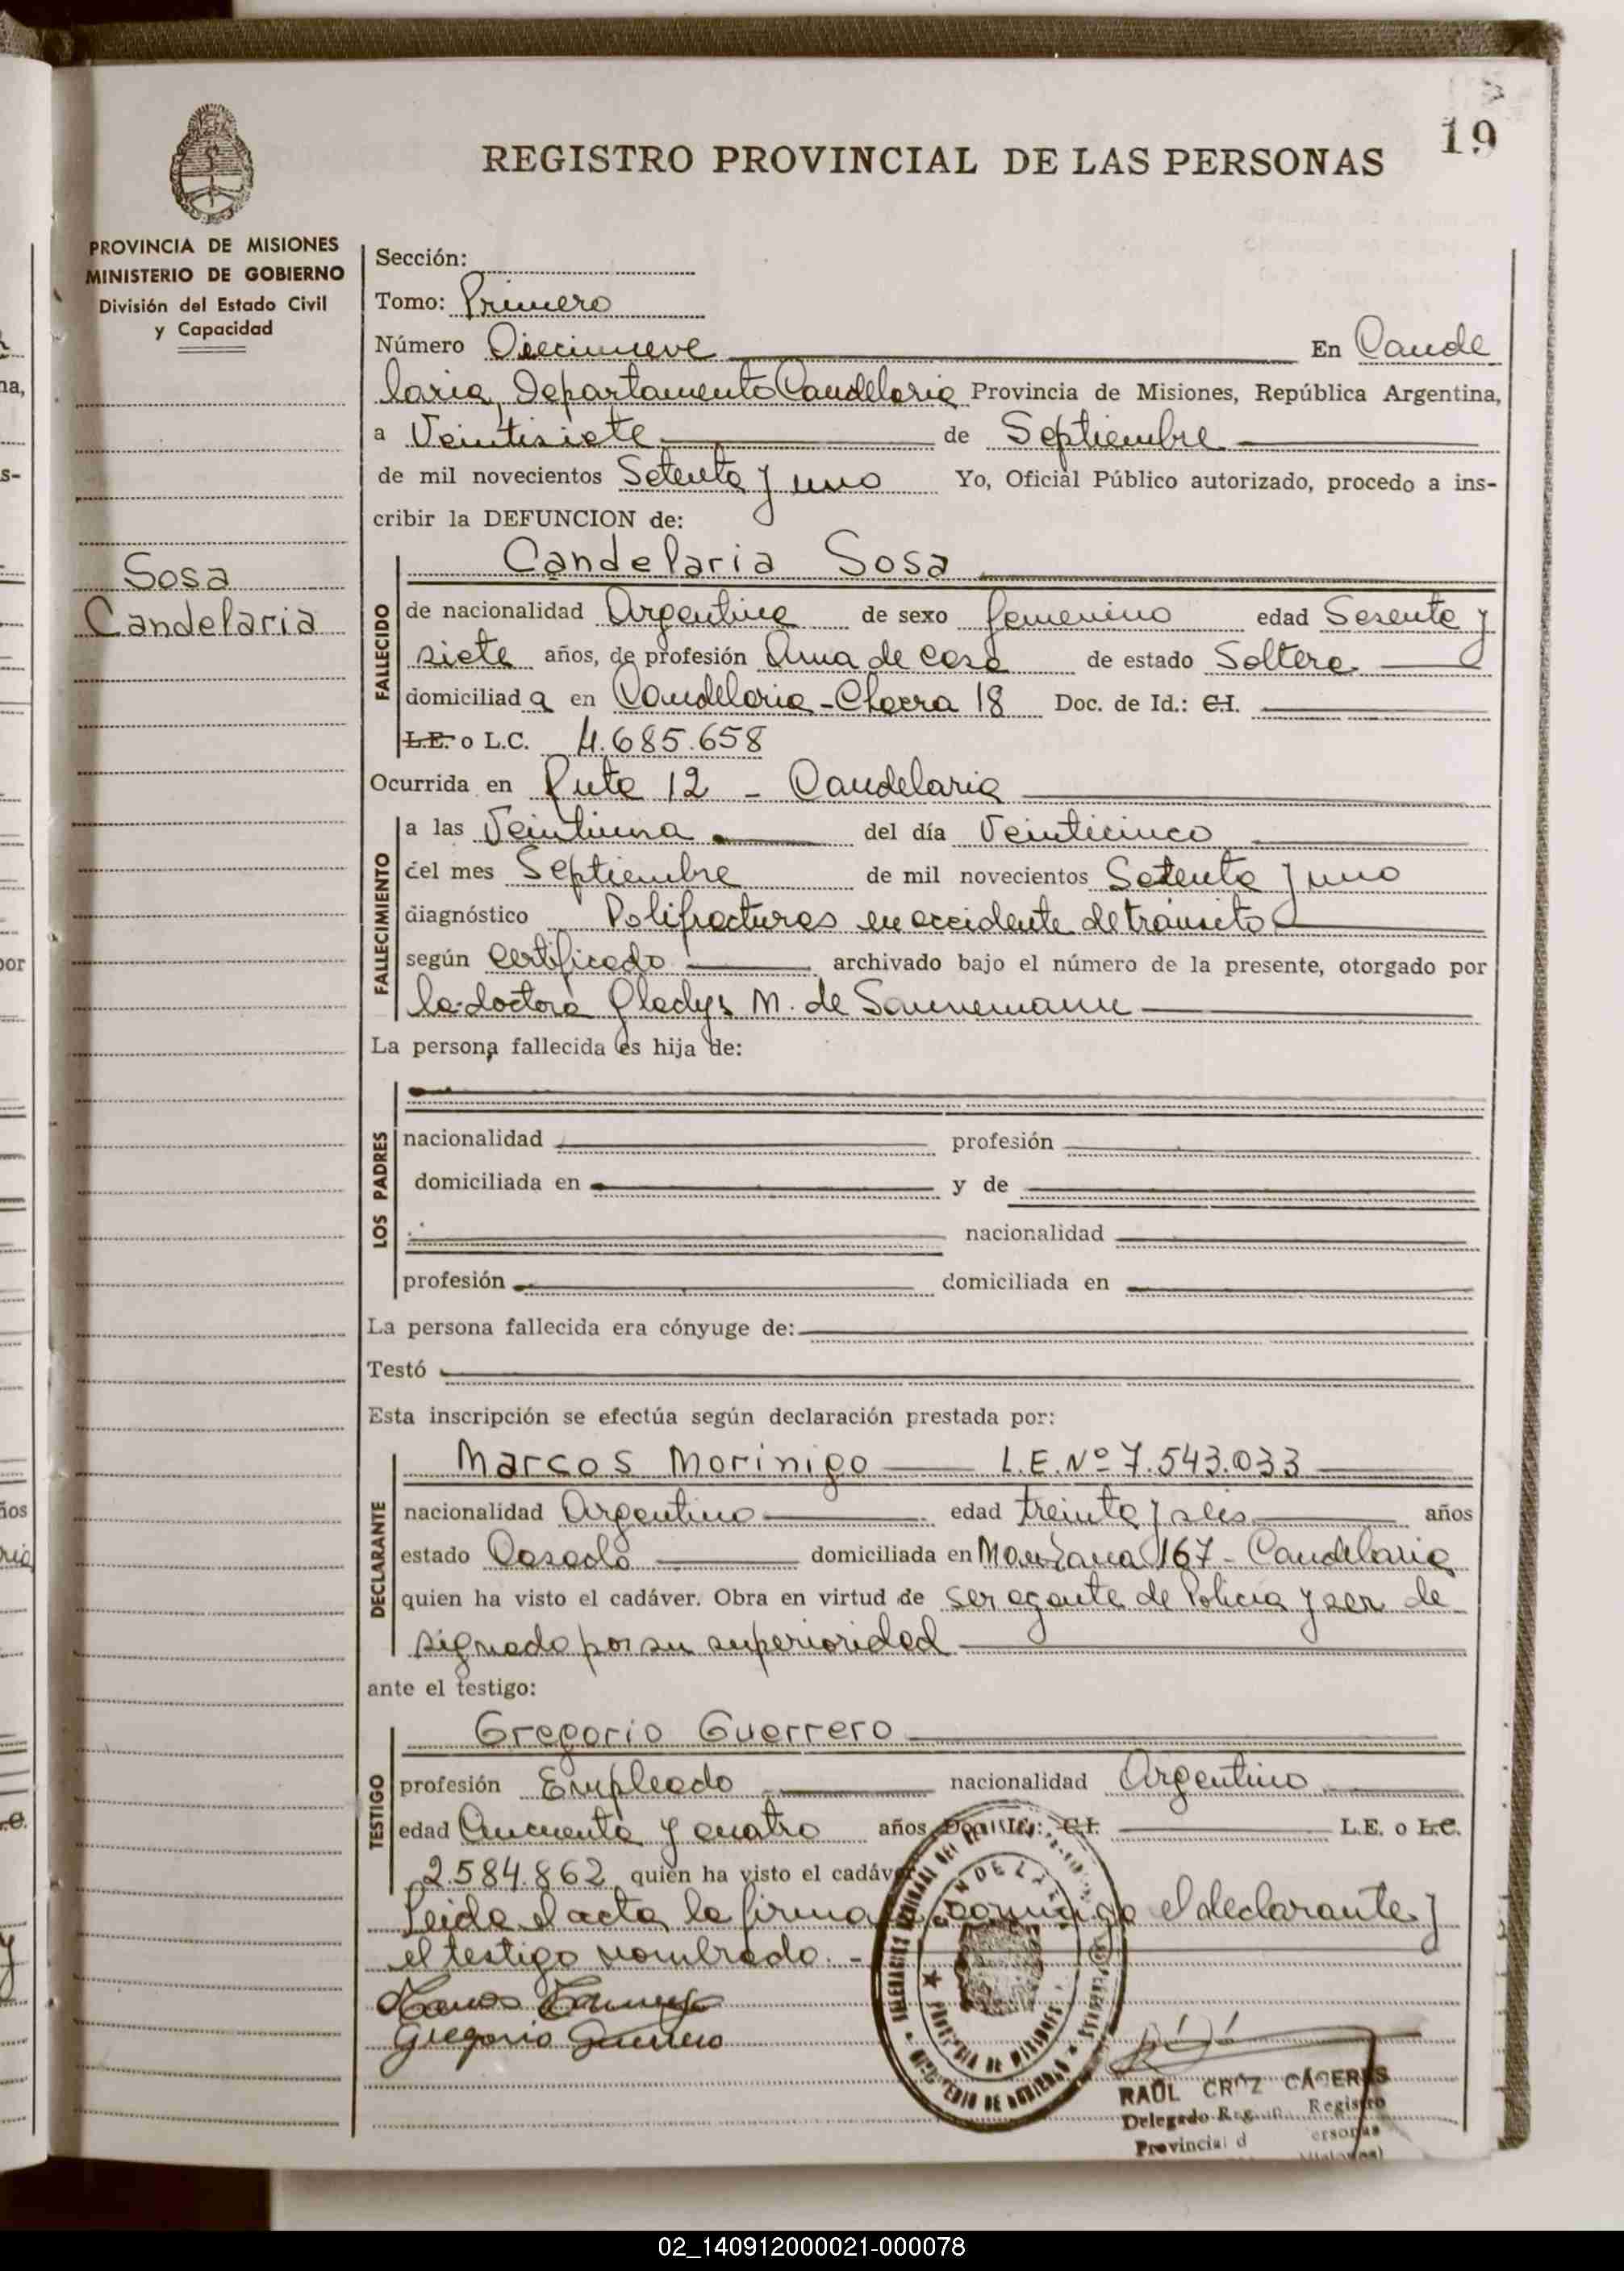 19
REGISTRO PROVINCIAL DE LAS PERSONAS
PROVINCIA DE MISIONES
MINISTERIO DE GOBIERNO
División del Estado Civil
y Capacidad
Sosa
Candelaria
Sección:
Tomo: Primero
Número Diecinueve En Cande
laria, Departamento Candelaria Provincia de Misiones, República Argentina,
a Veintisiete de Septiembre
de mil novecientos Setenta y uno Yo, Oficial Público autorizado, procedo a ins-
cribir la DEFUNCION de:
Candelaria Sosa
FALLECIDO
de nacionalidad Argentina de sexo femenino edad Sesenta y
siete años, de profesión Ama de casa de estado Soltera
domiciliada en Candelaria - Chacra 18 Doc. de Id.: C.I.
L.E. o L.C. 4.685.658
Ocurrida en Ruta 12 - Candelaria
FALLECIMIENTO
a las Veintiuna del día Veinticinco
del mes Septiembre de mil novecientos Setenta y uno
diagnóstico Polifracturas en accidente de tránsito
según certificado archivado bajo el número de la presente, otorgado por
la doctora Gladys M. de Sannemann
La persona fallecida es hija de:
LOS PADRES
nacionalidad profesión
domiciliada en y de
nacionalidad
profesión domiciliada en
La persona fallecida era cónyuge de:
Testó
Esta inscripción se efectúa según declaración prestada por:
Marcos Morinigo L.E. Nº 7.543.033
DECLARANTE
nacionalidad Argentino edad treinta y seis años
estado Casado domiciliada en Manzana 167 - Candelaria
quien ha visto el cadáver. Obra en virtud de ser agente de Policía y ser de
signado por su superioridad
ante el testigo:
Gregorio Guerrero
TESTIGO
profesión Empleado nacionalidad Argentino
edad Cincuenta y cuatro años, Doc. Id.: C.I. L.E. o L.C.
2.584.862 quien ha visto el cadáver
Leida el acta, la firma conmigo el declarante y
el testigo nombrado. -
Gregorio Guerrero
CANDELARIA
PROVINCIA DE MISIONES
MINISTERIO DE GOBIERNO
RAÚL CRUZ CÁCERES
Delegado Registro
Provincial d
02_140912000021-000078